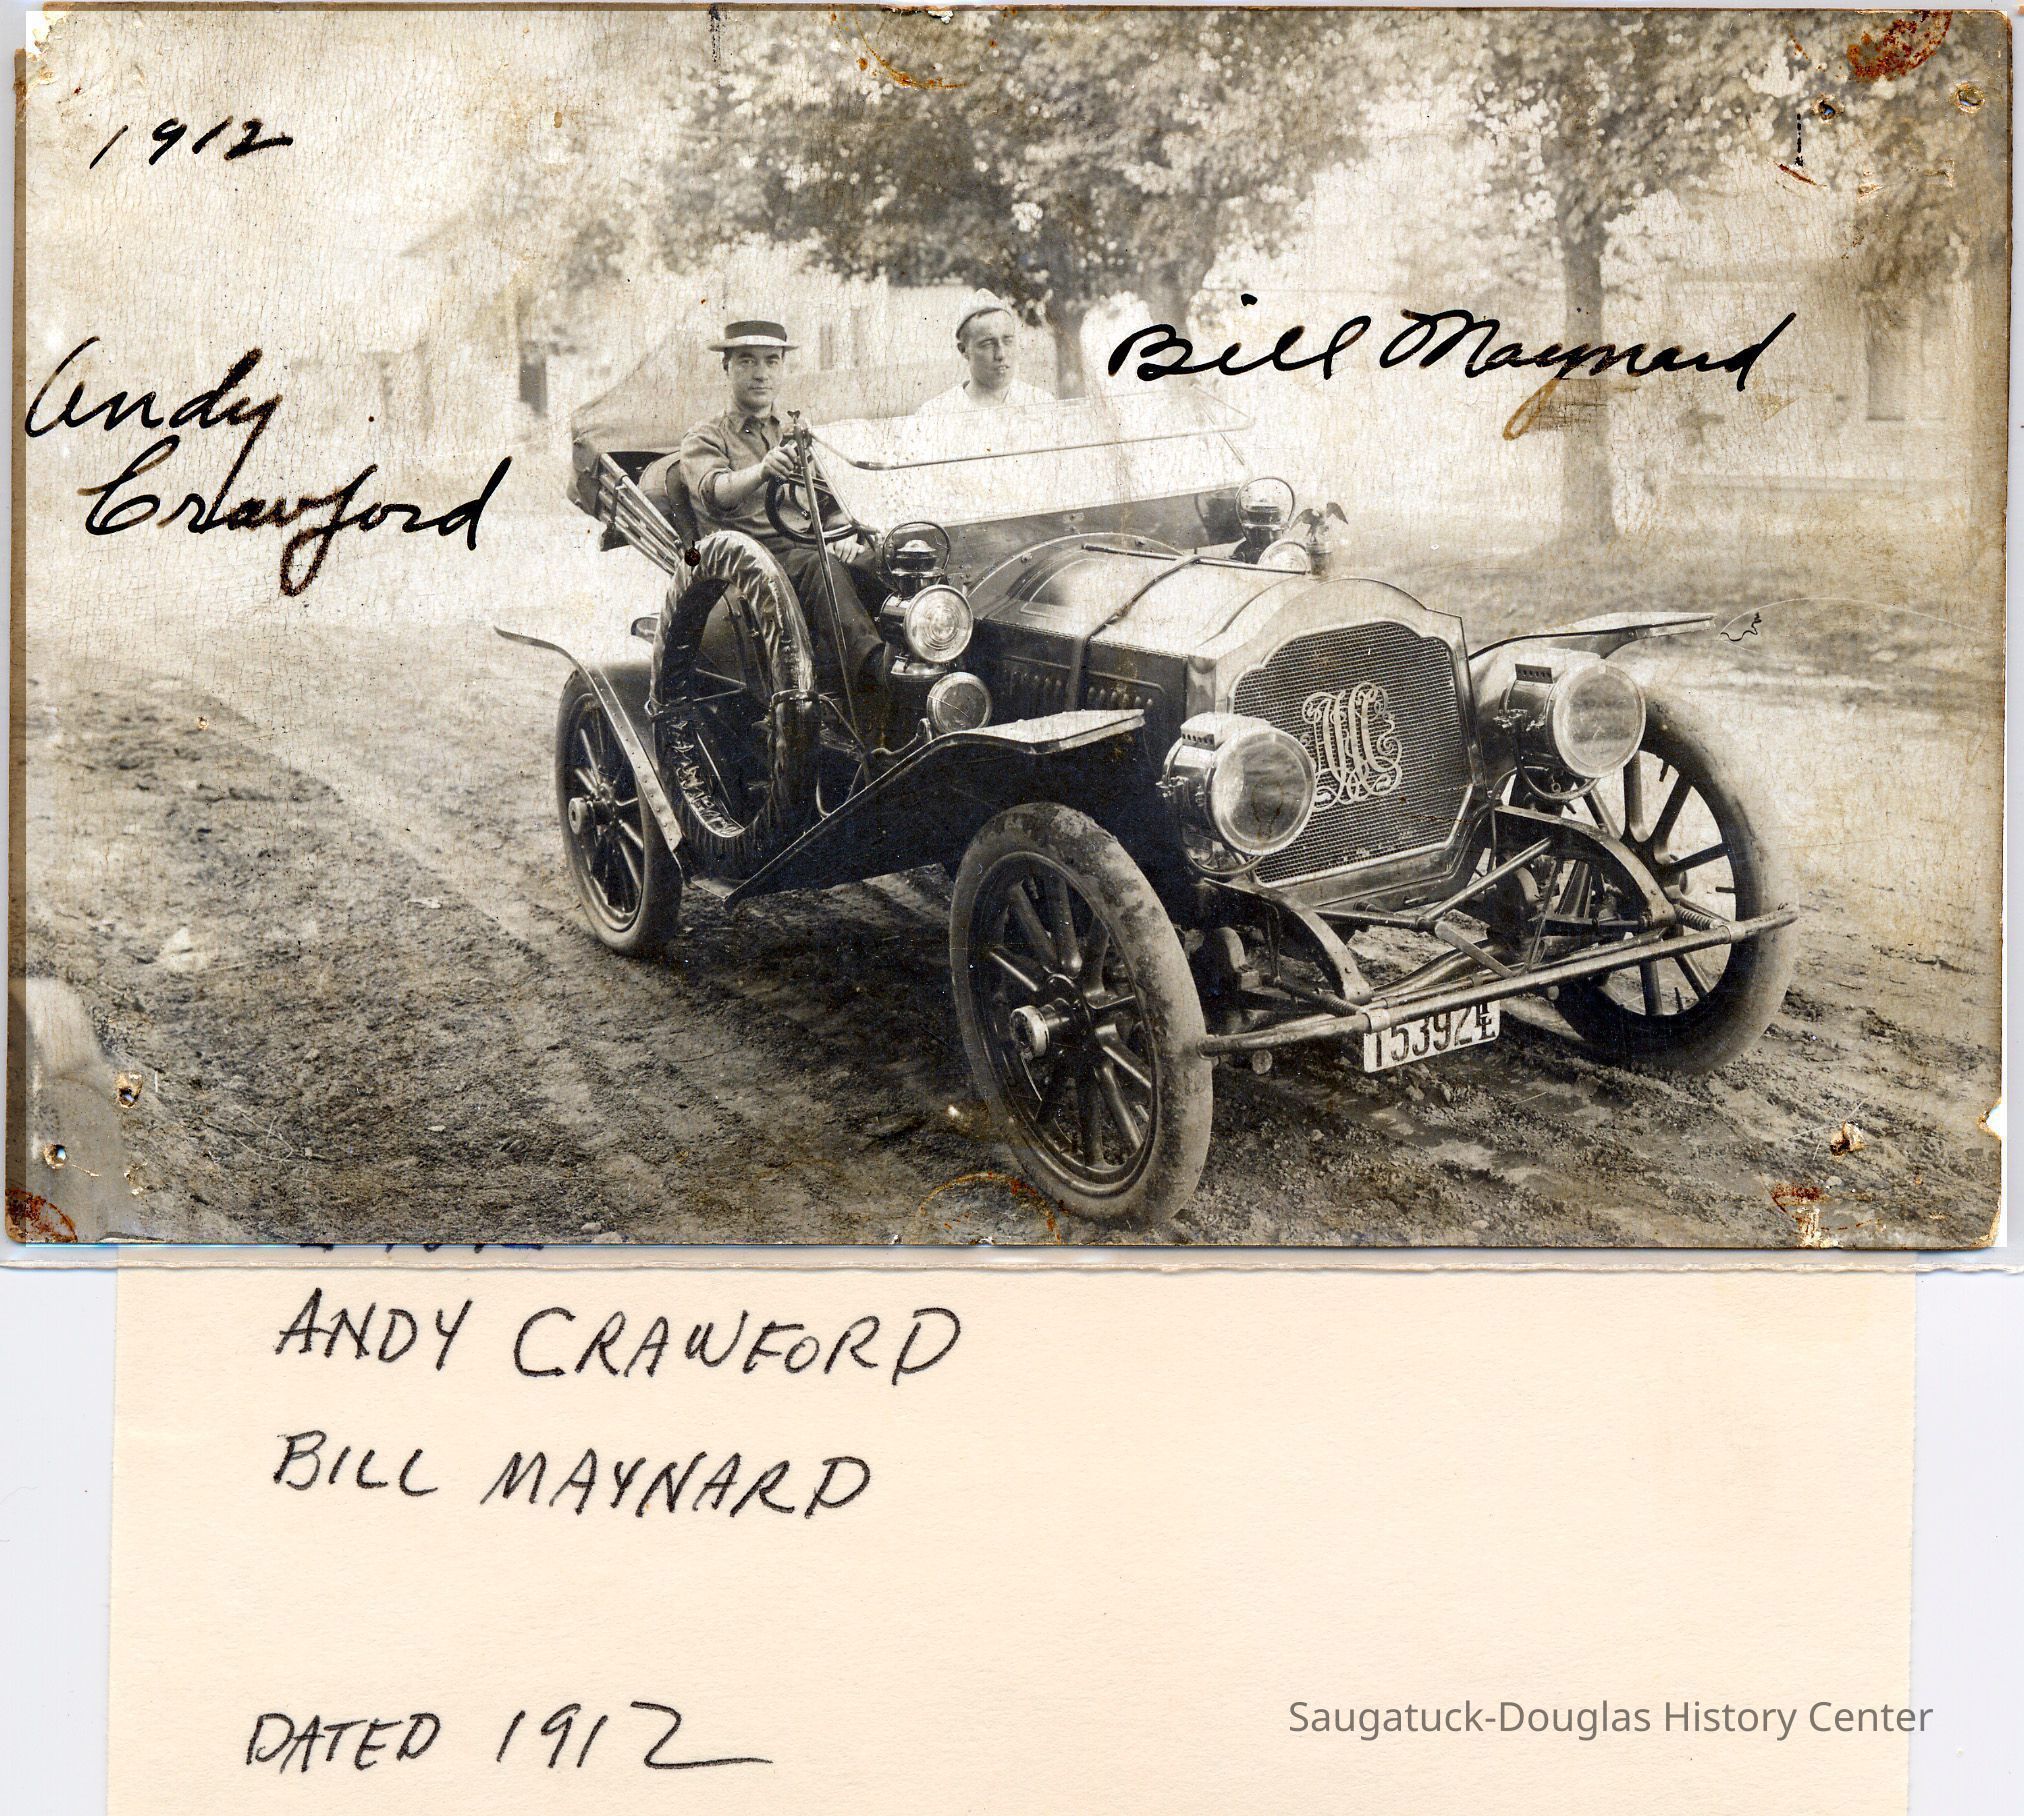 1912
Andy
Crawford
Bill Maynard
15392
ANDY CRAWFORD
BILL MAYNARD
DATED 1912
Saugatuck-Douglas History Center